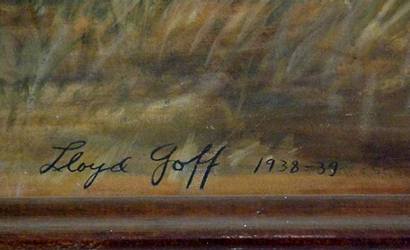 Lloyd Goff 1938-39